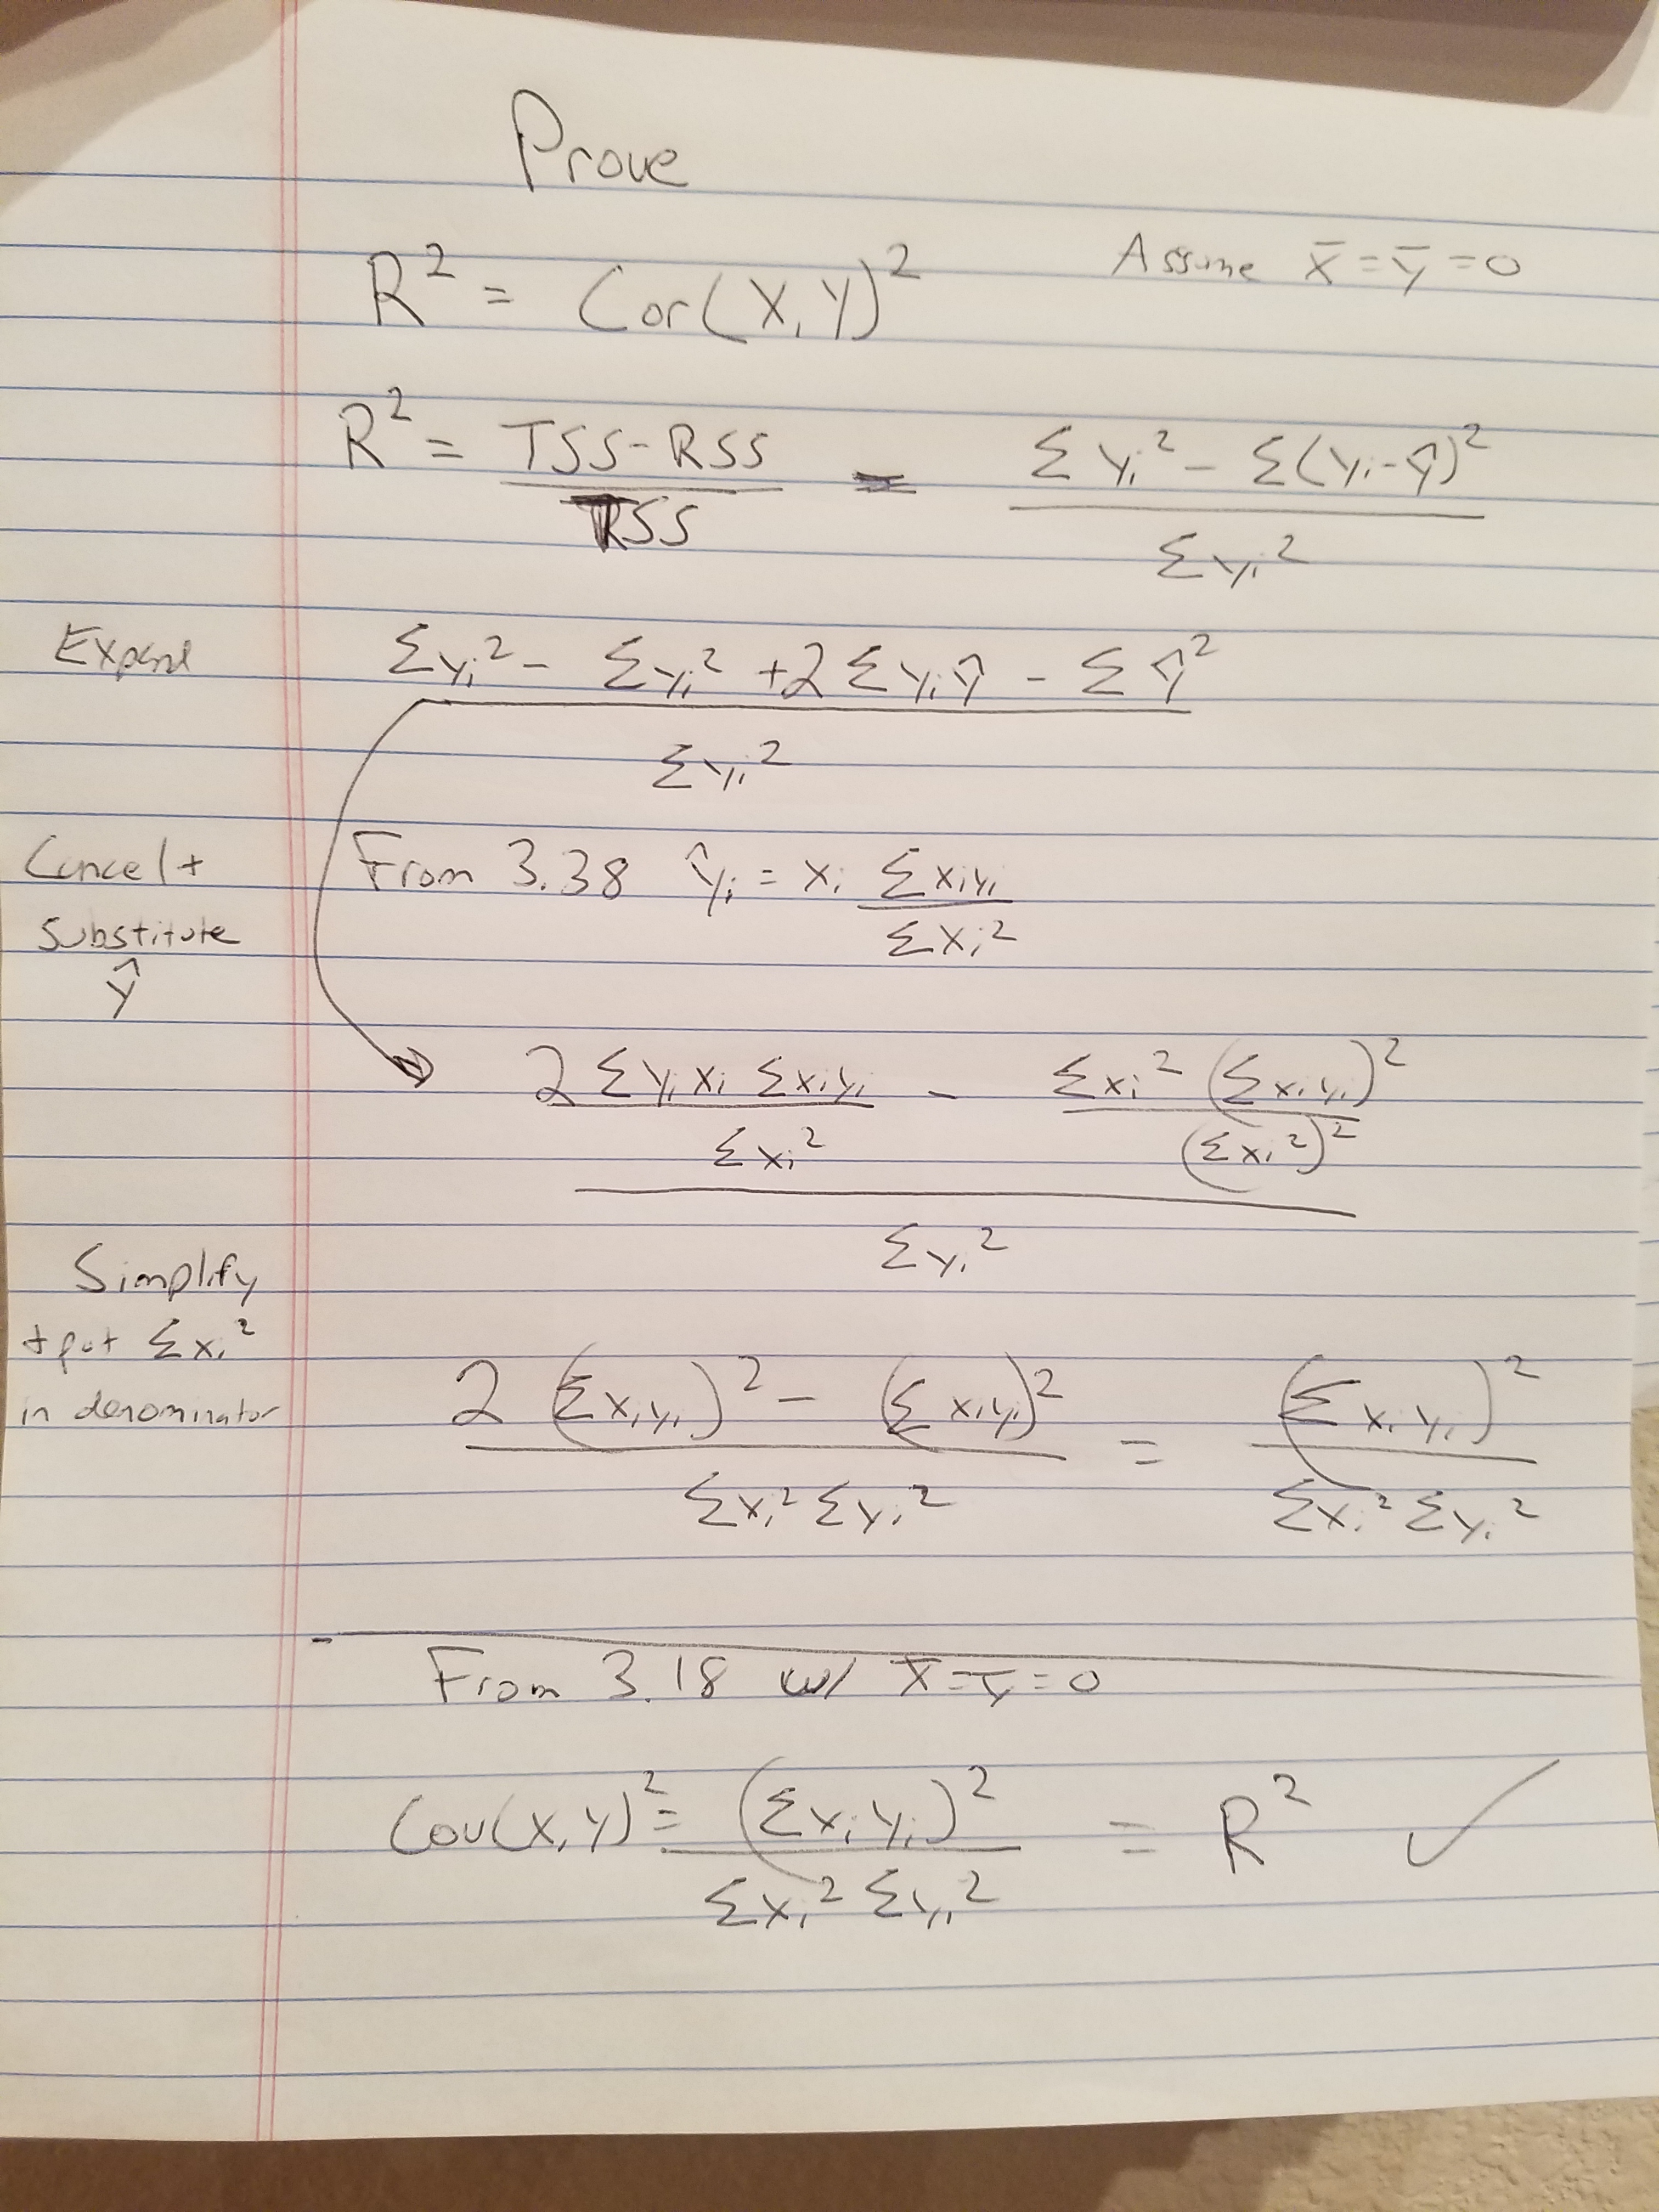 Prove
R² = Cor(X,Y)²    Assume x̄ = ȳ = 0
R² = (TSS - RSS) / TSS = (Σyᵢ² - Σ(yᵢ - ŷ)²) / Σyᵢ²
Expand    (Σyᵢ² - Σyᵢ² + 2Σyᵢŷ - Σŷ²) / Σyᵢ²
Cancel +    From 3.38 ŷᵢ = xᵢ Σxᵢyᵢ / Σxᵢ²
Substitute
ŷ
(2Σyᵢxᵢ Σxᵢyᵢ / Σxᵢ² - Σxᵢ² (Σxᵢyᵢ)² / (Σxᵢ²)²) / Σyᵢ²
Simplify
+ put Σxᵢ²
in denominator
(2(Σxᵢyᵢ)² - (Σxᵢyᵢ)²) / Σxᵢ²Σyᵢ² = (Σxᵢyᵢ)² / Σxᵢ²Σyᵢ²
From 3.18 w/ x̄ = ȳ = 0
Cov(X,Y)² = (Σxᵢyᵢ)² / Σxᵢ²Σyᵢ² = R² ✓